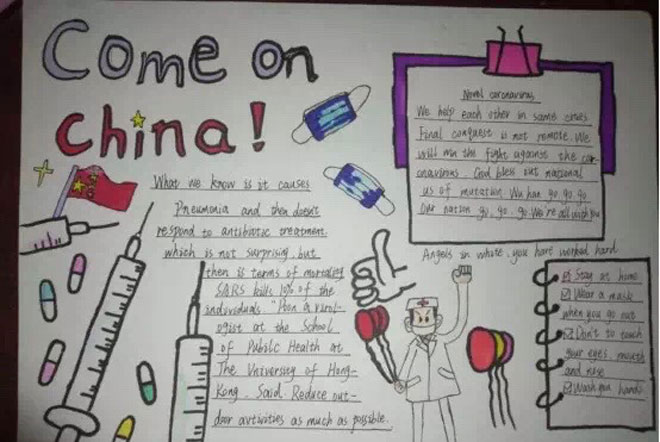 Come on
China!
What we know is it causes
Pneumonia and then doesn't
respond to antibiotic treatment.
which is not surprising, but
then is terms of mortality
SARS kills 10% of the
individuals. "Poon a virol-
ogist at the School
of Public Health at
The University of Hong-
Kong, Said. Reduce out-
door avtivities as much as possible.
Novel coronavirus
We help each other in same
Final conquest is not remote. We
will win the fight against the cor
onavirus. God bless out national
us of mutation. Wu han go, go, go
Our nation go, go, go. We're all with you
Angels in white, you hart worked hard
Stay at home
Wear a mask
when you go out
Don't to touch
your eyes, mouth
and nose
Wash you hand